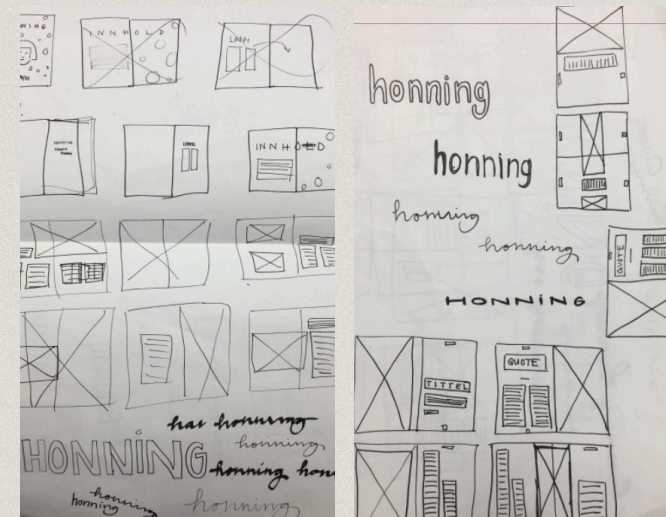 INNHOLD
LEDER
LEDER
INNHOLD
HONNING
honning
honning
honning
honning
honning
honning
honning
honning
honning
honning
HONNING
QUOTE
TITTEL
QUOTE